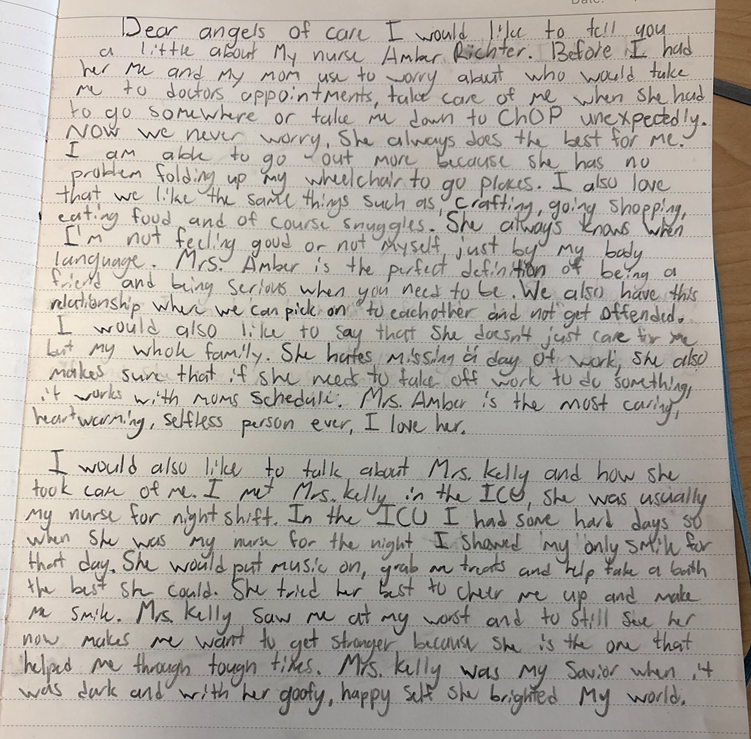 Date:
Dear angels of care I would like to tell you
a little about My nurse Amber Richter. Before I had
her me and my mom use to worry about who would take
me to doctors appointments, take care of me when she had
to go somewhere or take me down to CHOP unexpectedly.
Now we never worry. She always does the best for me.
I am able to go out more because she has no
problem folding up my wheelchair to go places. I also love
that we like the same things such as, crafting, going shopping,
eating food and of course snuggles. She always knows when
I'm not feeling good or not myself just by my body
language. Mrs. Amber is the perfect definition of being a
friend and being serious when you need to be. We also have this
relationship where we can pick on to eachother and not get offended.
I would also like to say that she doesn't just care for me
but my whole family. She hates missing a day of work, she also
makes sure that if she needs to take off work to do something,
it works with moms schedule. Mrs. Amber is the most caring,
heartwarming, selfless person ever, I love her.
I would also like to talk about Mrs. Kelly and how she
took care of me. I met Mrs. Kelly in the ICU, she was usually
my nurse for night shift. In the ICU I had some hard days so
when she was my nurse for the night I showed my only smile for
that day. She would put music on, grab me treats and help take a bath
the best she could. She tried her best to cheer me up and make
me smile. Mrs. Kelly saw me at my worst and to still see her
now makes me want to get stronger because she is the one that
helped me through tough times. Mrs. Kelly was my savior when it
was dark and with her goofy, happy self she brighted My world.